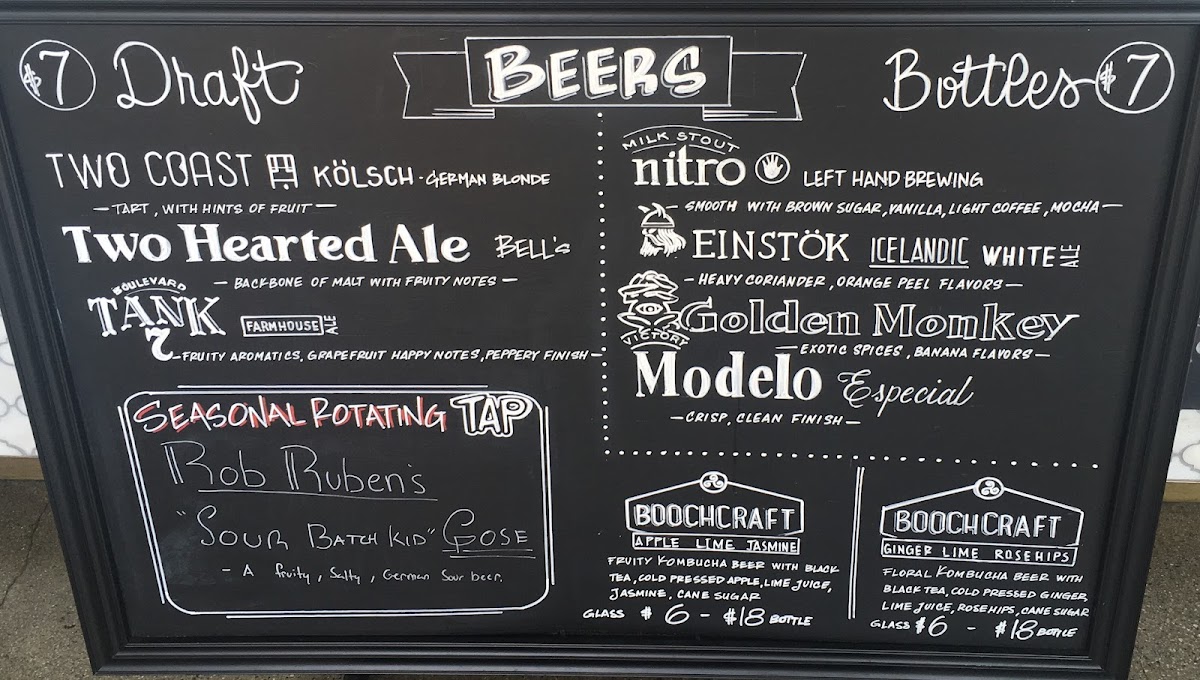 $7 Draft
BEERS
Bottles $7
TWO COAST KÖLSCH - GERMAN BLONDE
— TART, WITH HINTS OF FRUIT —
Two Hearted Ale BELL'S
— BACKBONE OF MALT WITH FRUITY NOTES —
BOULEVARD
TANK
7
FARMHOUSE ALE
— FRUITY AROMATICS, GRAPEFRUIT HAPPY NOTES, PEPPERY FINISH —
SEASONAL ROTATING TAP
Rob Ruben's
"SOUR BATCH KID" GOSE
- A fruity, Salty, German Sour beer.
MILK STOUT
nitro LEFT HAND BREWING
— SMOOTH WITH BROWN SUGAR, VANILLA, LIGHT COFFEE, MOCHA —
EINSTÖK ICELANDIC WHITE ALE
— HEAVY CORIANDER, ORANGE PEEL FLAVORS —
VICTORY
Golden Monkey
— EXOTIC SPICES, BANANA FLAVORS —
Modelo Especial
— CRISP, CLEAN FINISH —
BOOCHCRAFT
APPLE LIME JASMINE
FRUITY KOMBUCHA BEER WITH BLACK
TEA, COLD PRESSED APPLE, LIME JUICE,
JASMINE, CANE SUGAR
GLASS $6 - $18 BOTTLE
BOOCHCRAFT
GINGER LIME ROSEHIPS
FLORAL KOMBUCHA BEER WITH
BLACK TEA, COLD PRESSED GINGER,
LIME JUICE, ROSEHIPS, CANE SUGAR
GLASS $6 - $18 BOTTLE